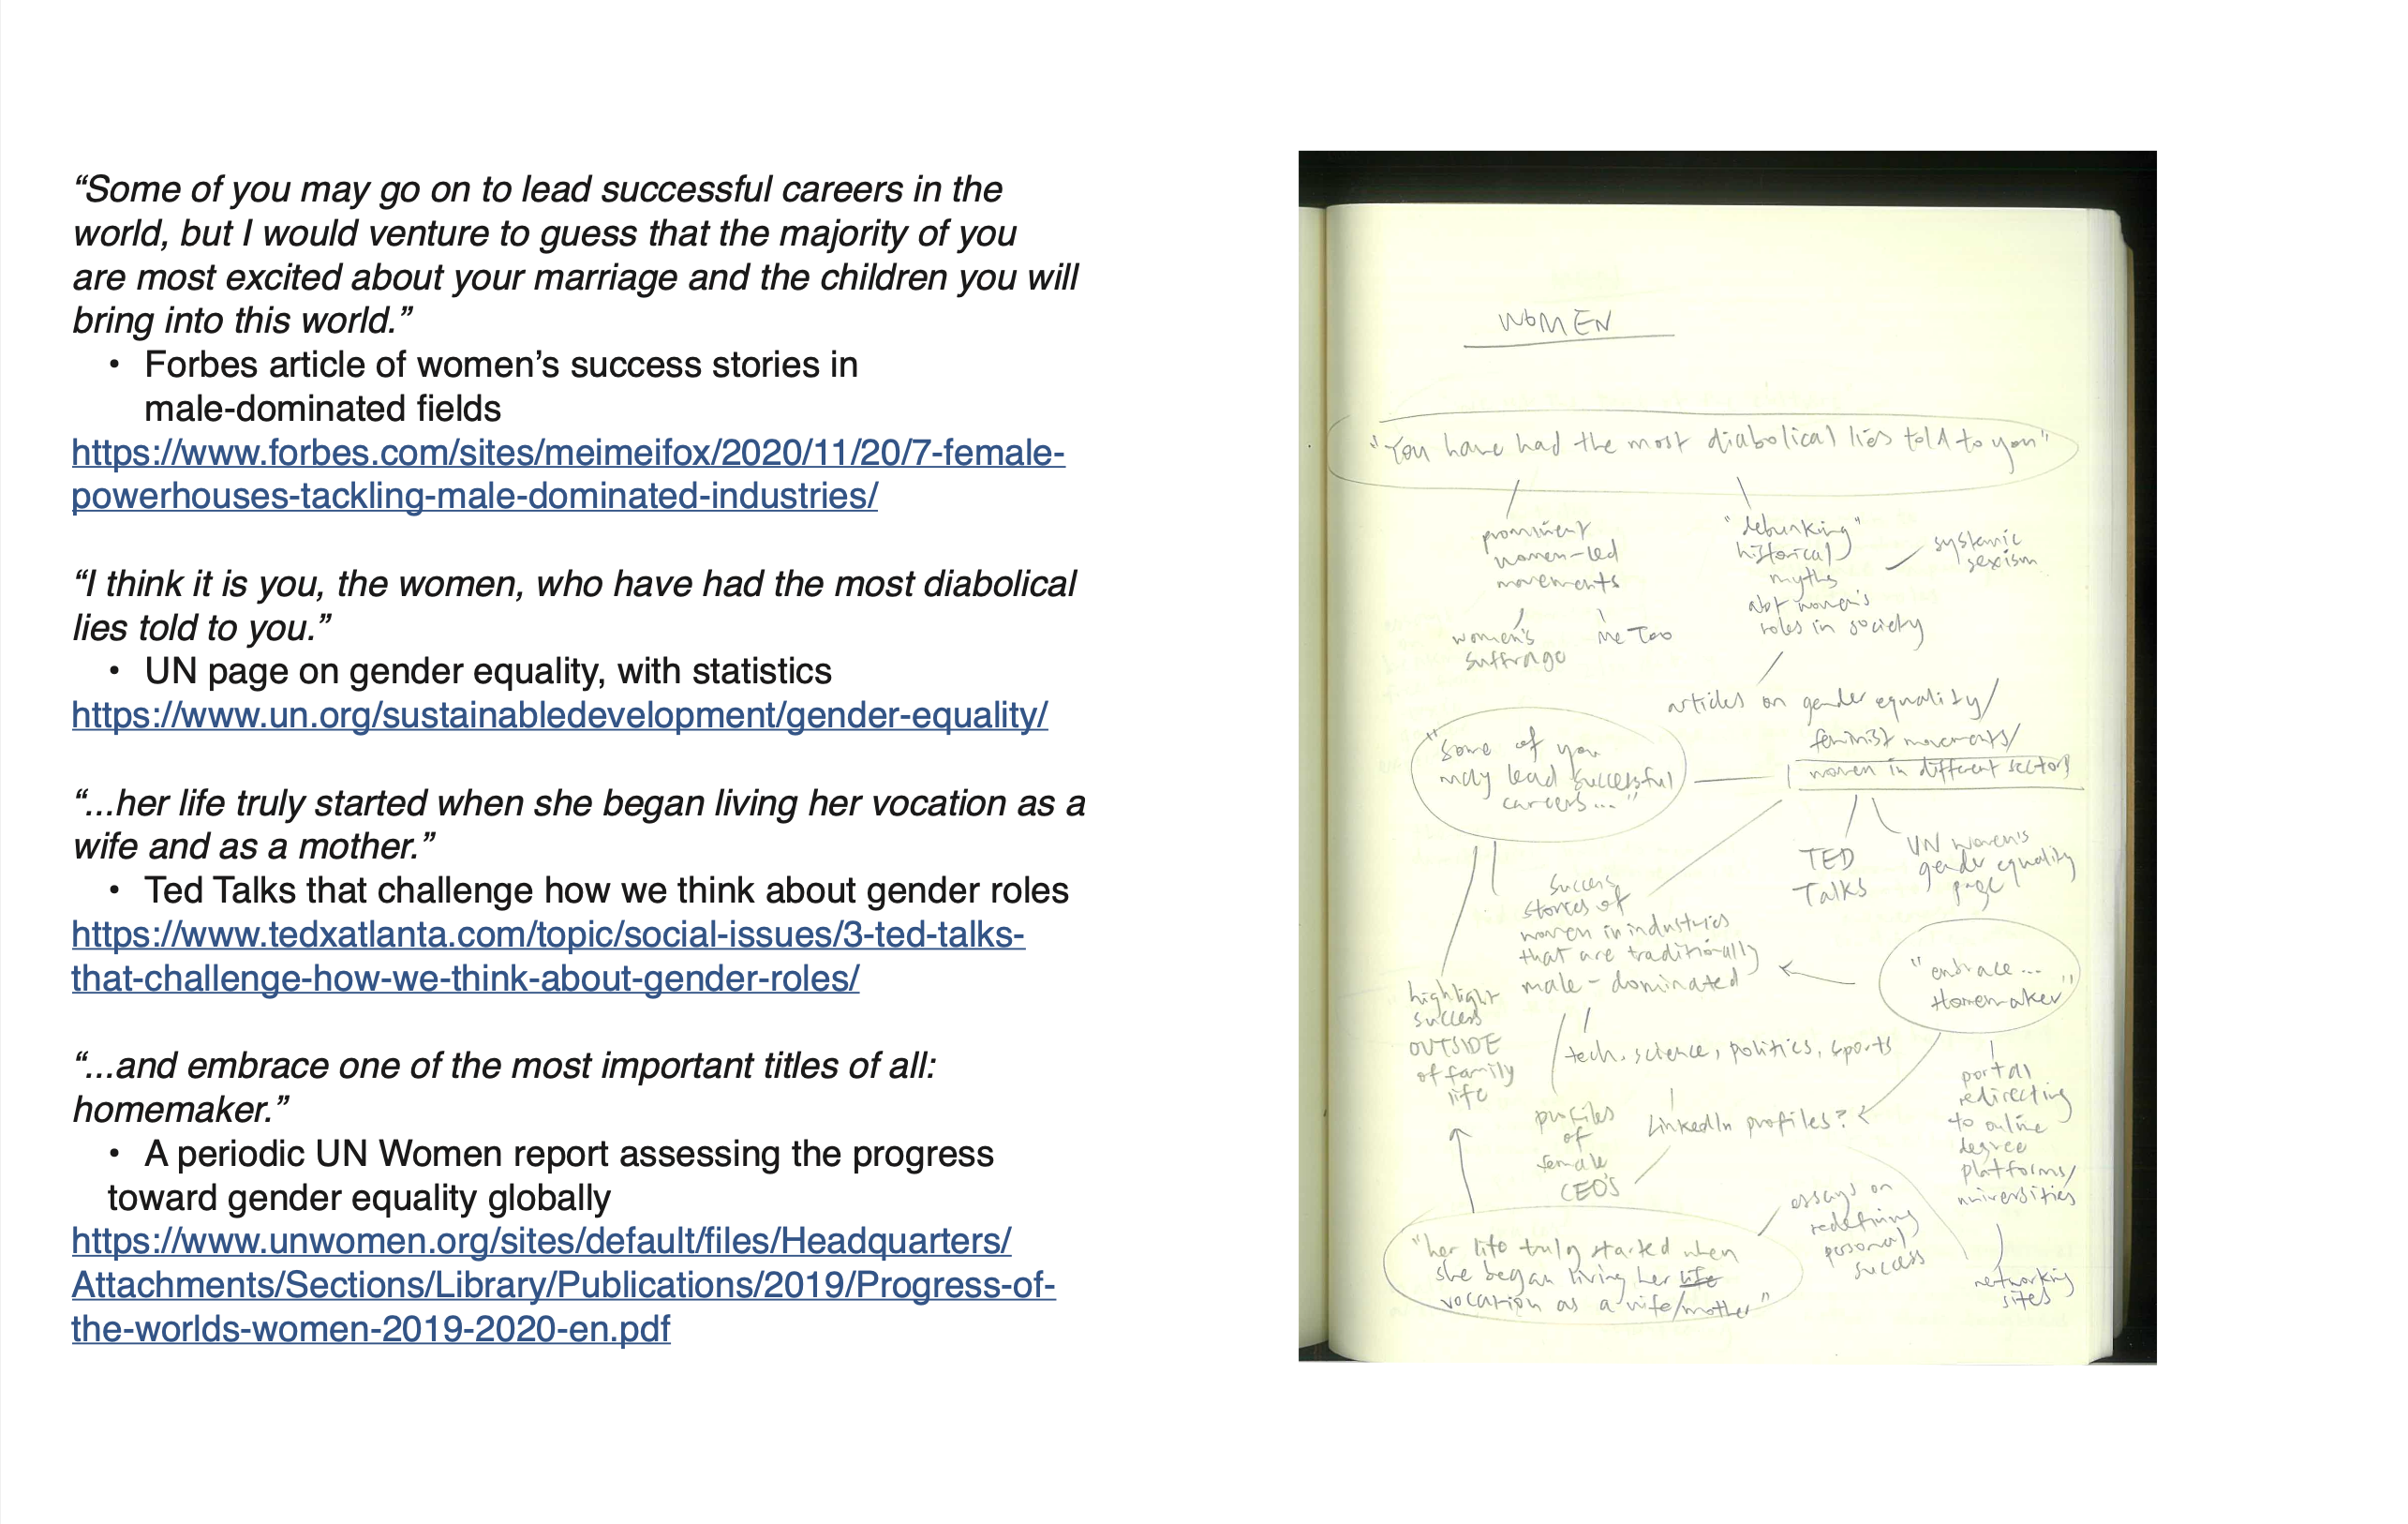 “Some of you may go on to lead successful careers in the
world, but I would venture to guess that the majority of you
are most excited about your marriage and the children you will
bring into this world.”
• Forbes article of women’s success stories in
male-dominated fields
https://www.forbes.com/sites/meimeifox/2020/11/20/7-female-
powerhouses-tackling-male-dominated-industries/
“I think it is you, the women, who have had the most diabolical
lies told to you.”
• UN page on gender equality, with statistics
https://www.un.org/sustainabledevelopment/gender-equality/
“...her life truly started when she began living her vocation as a
wife and as a mother.”
• Ted Talks that challenge how we think about gender roles
https://www.tedxatlanta.com/topic/social-issues/3-ted-talks-
that-challenge-how-we-think-about-gender-roles/
“...and embrace one of the most important titles of all:
homemaker.”
• A periodic UN Women report assessing the progress
toward gender equality globally
https://www.unwomen.org/sites/default/files/Headquarters/
Attachments/Sections/Library/Publications/2019/Progress-of-
the-worlds-women-2019-2020-en.pdf
WOMEN
"You have had the most diabolical lies told to you"
prominent
women-led
movements
women's
suffrage
me Too
"debunking"
historical
myths
abt women's
roles in society
systemic
sexism
articles on gender equality/
feminist movements/
women in different sectors
"some of you
may lead successful
careers..."
TED
Talks
UN Women's
gender equality
page
success
stories of
women in industries
that are traditionally
male-dominated
"embrace...
Homemaker"
highlight
success
OUTSIDE
of family
life
tech, science, politics, sports
profiles
of
female
CEO's
LinkedIn profiles?
portal
redirecting
to online
degree
platforms/
universities
essays on
redefining
personal
success
networking
sites
"her life truly started when
she began living her life
vocation as a wife/mother"